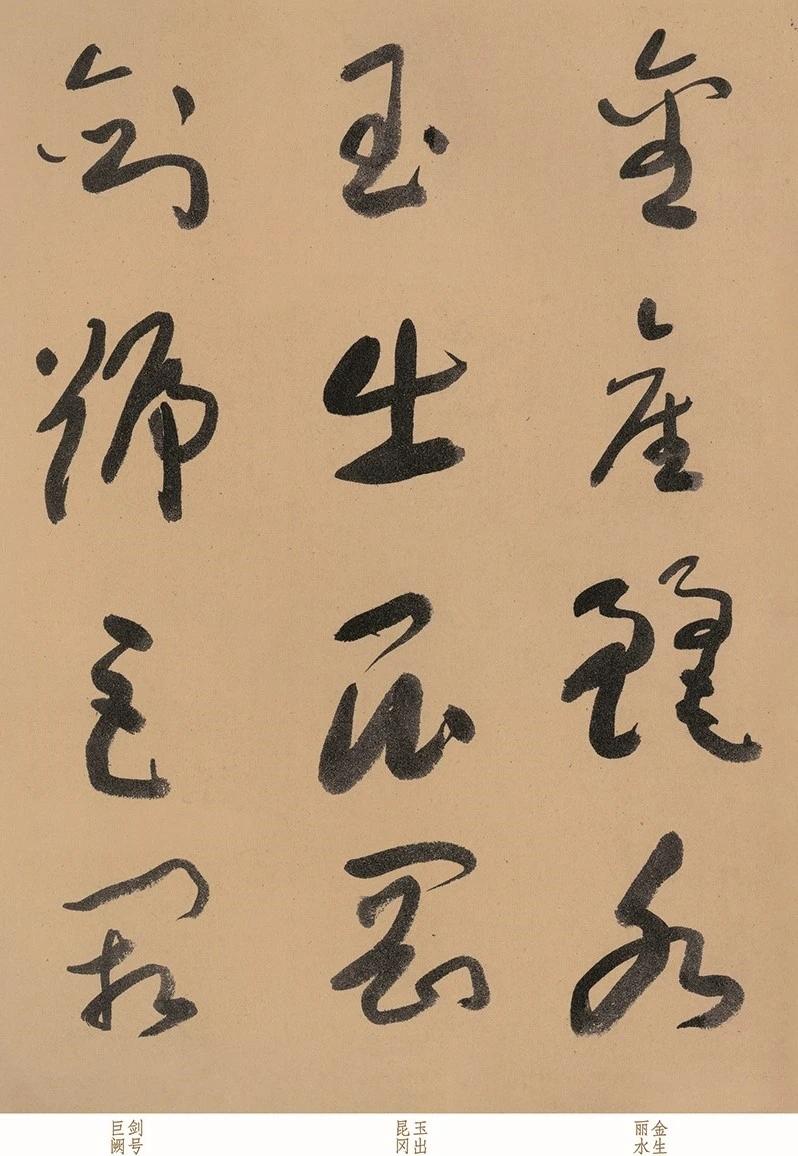 金生麗水
玉出崑岡
劍號巨闕
金生丽水
玉出昆冈
剑号巨阙